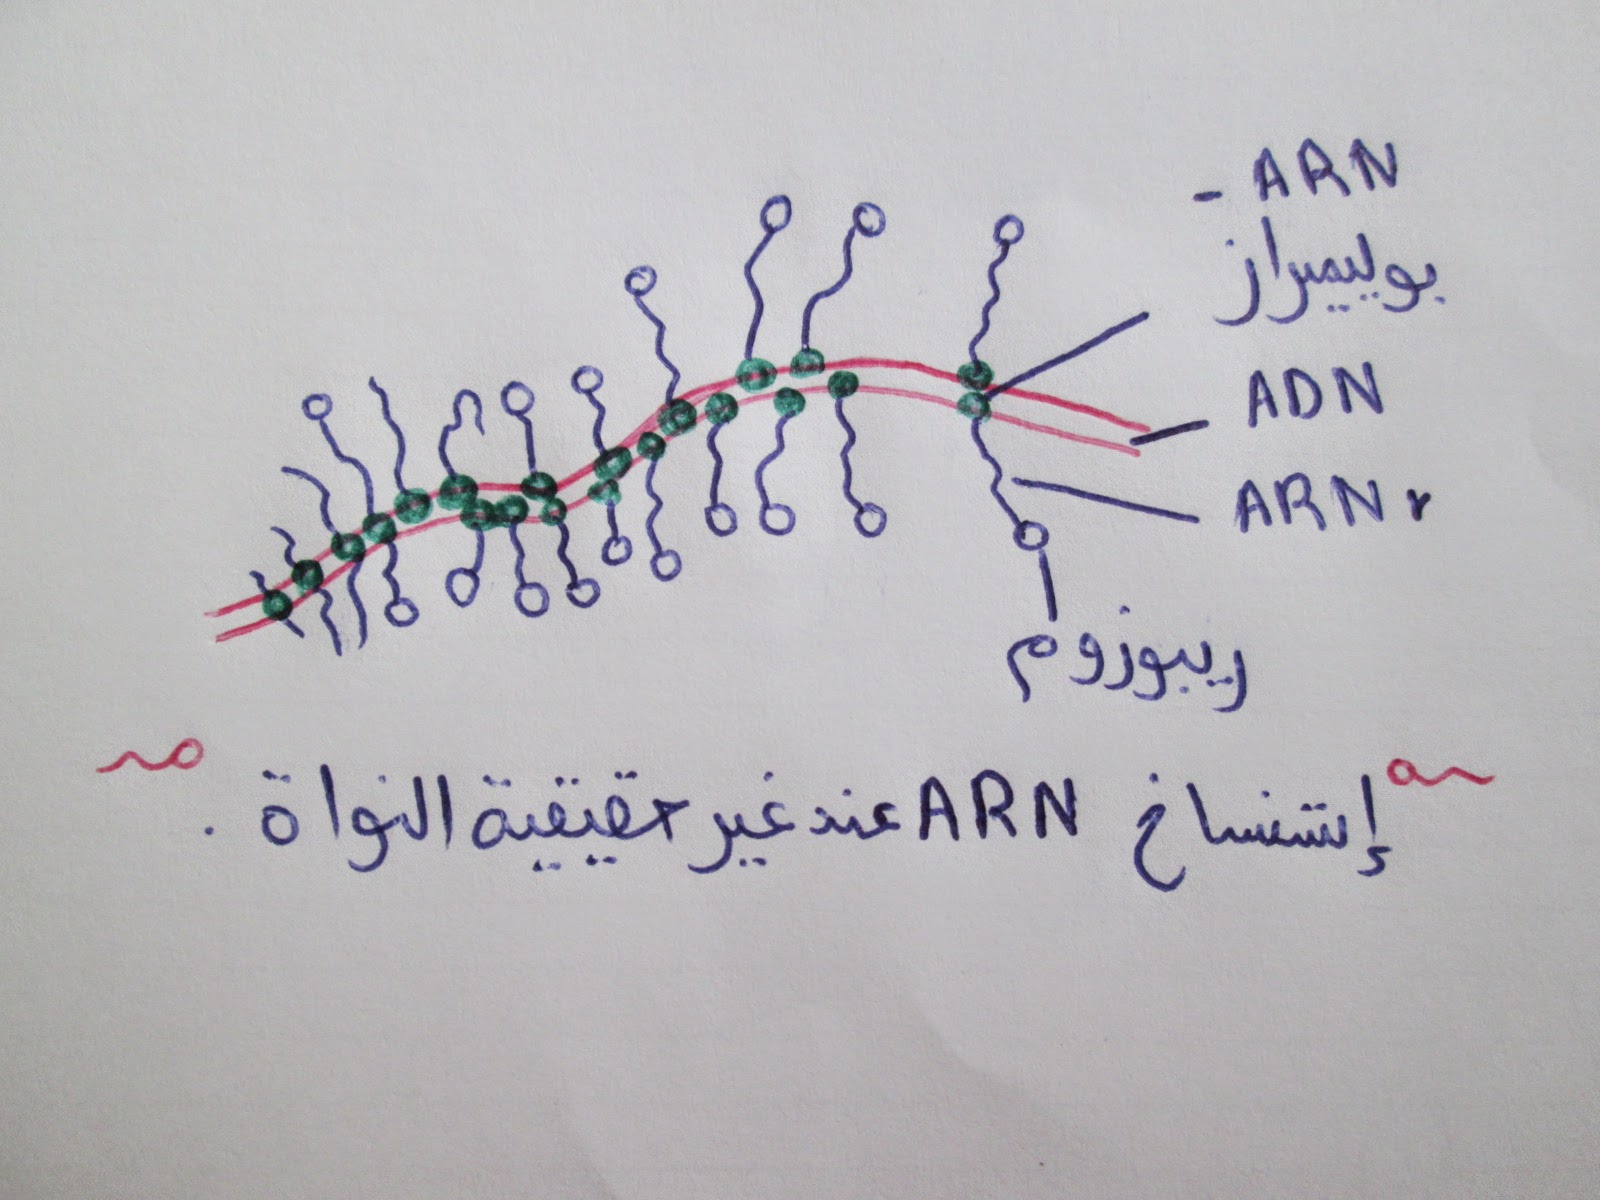 - ARN
بوليميراز
ADN
ARN r
ريبوزوم
إستنساخ ARN عند غير حقيقية النواة .